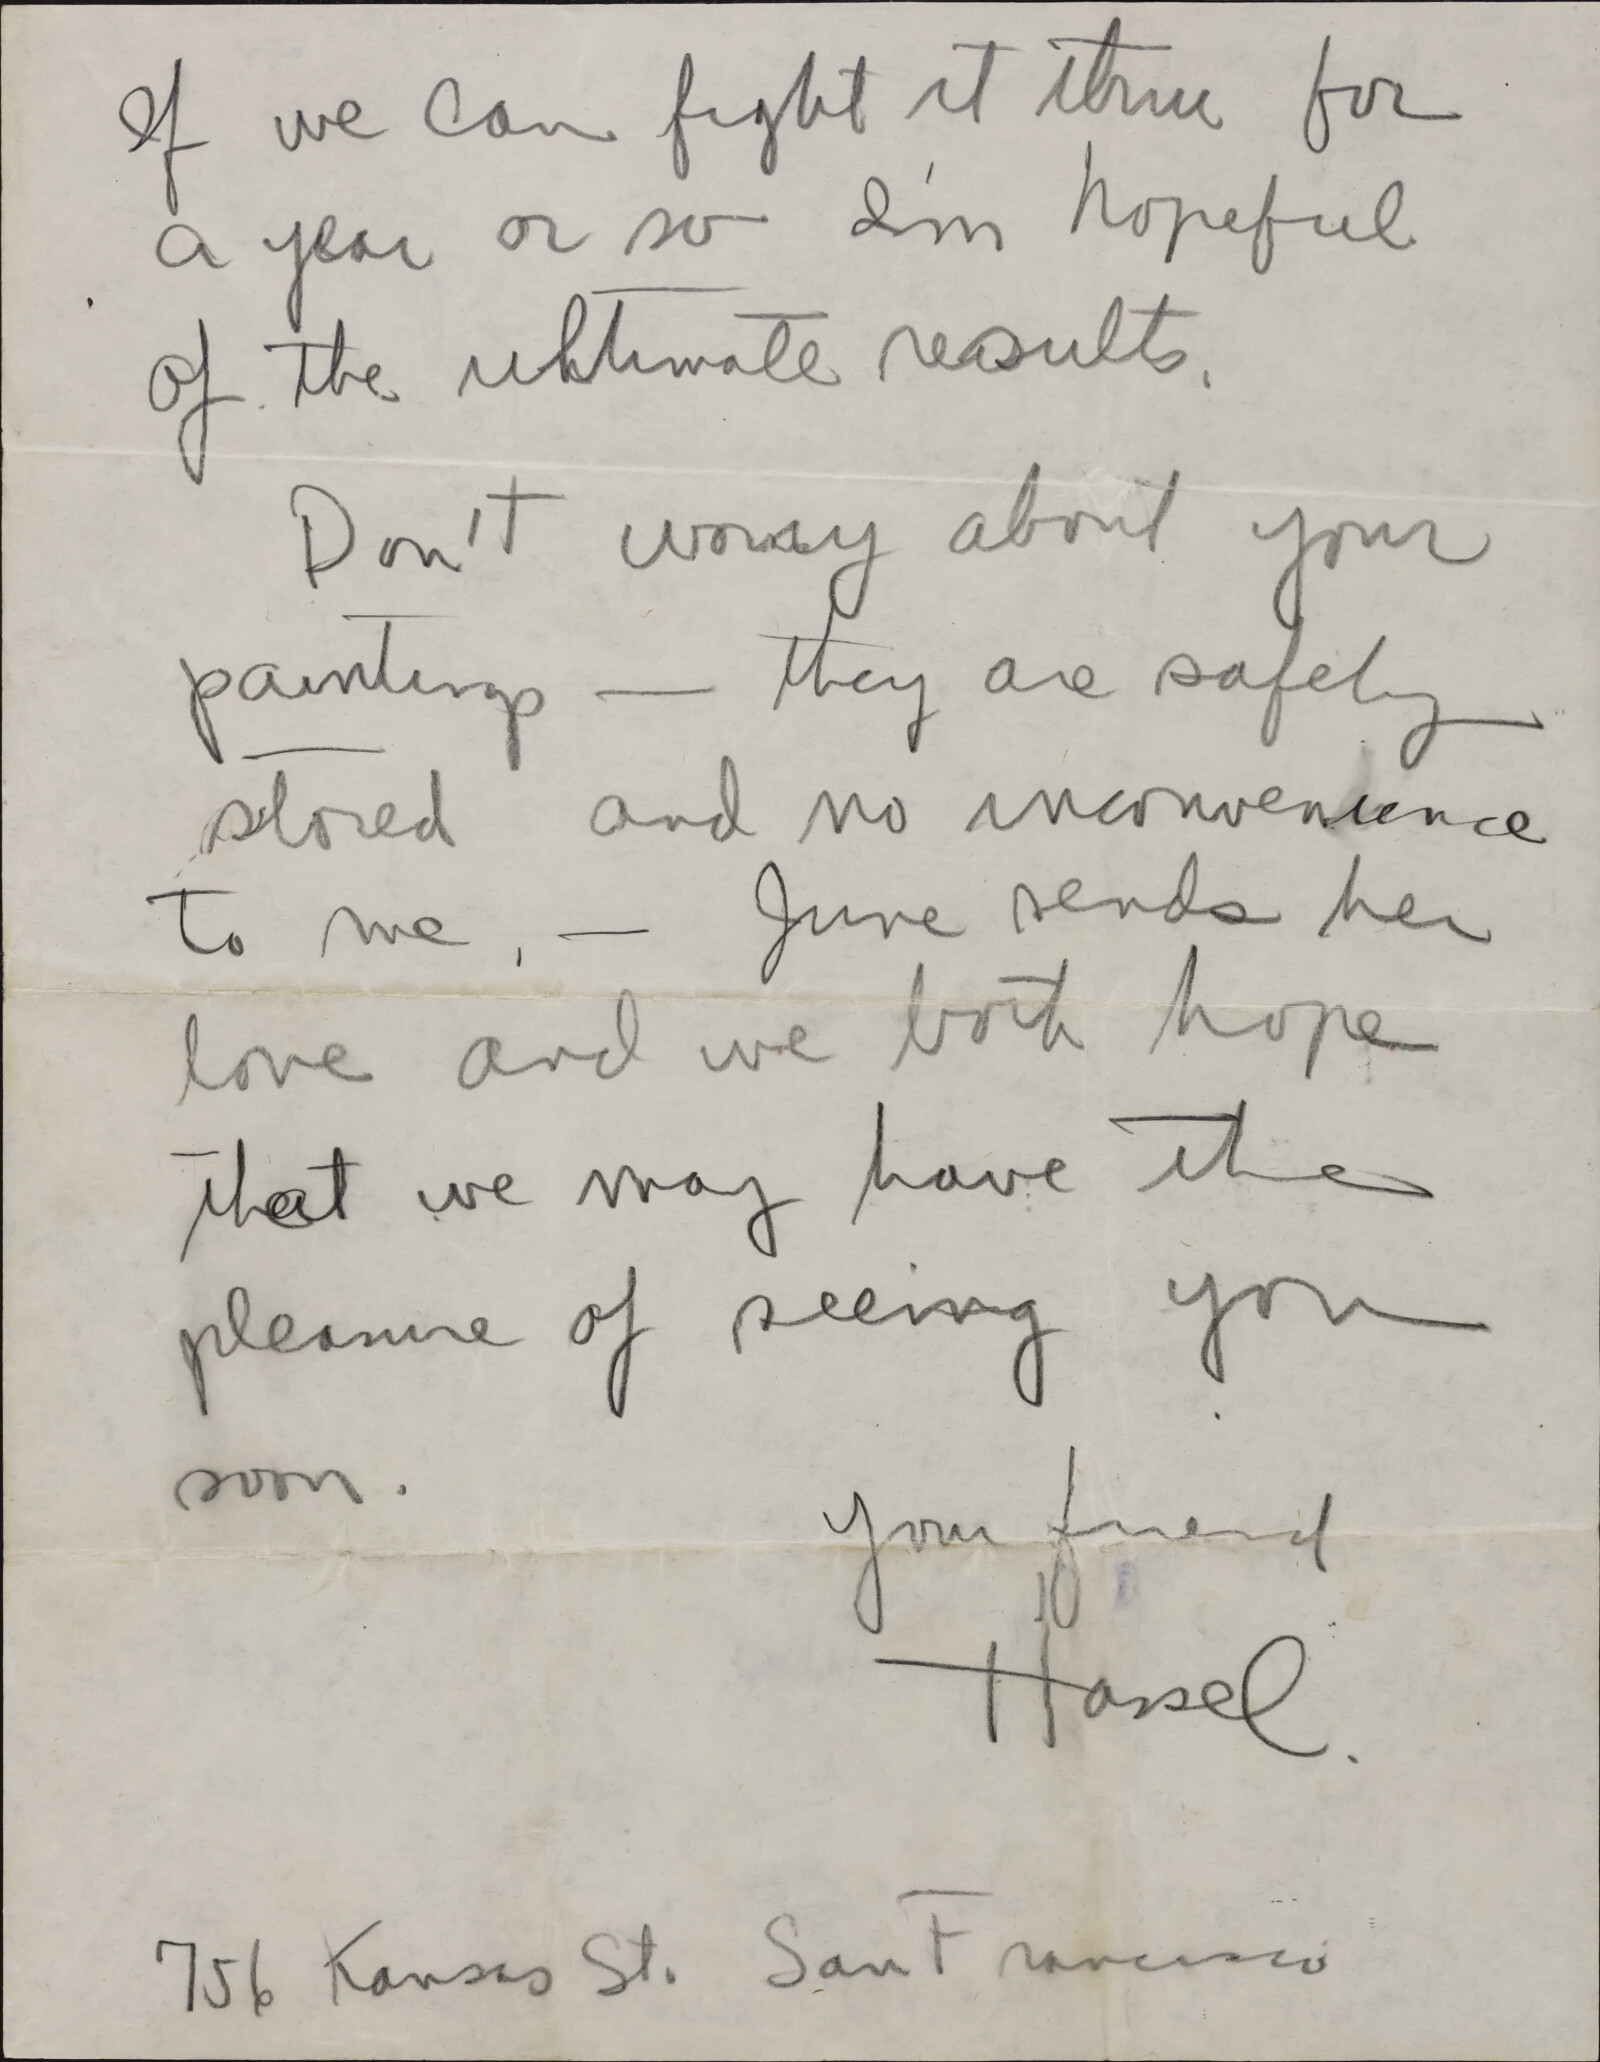 If we can fight it thru for
a year or so I'm hopeful
of the ultimate results.
Don't worry about your
paintings — they are safely
stored and no inconvenience
to me. — June sends her
love and we both hope
that we may have the
pleasure of seeing you
soon.
Your friend
Hassel.
756 Kansas St. San Francisco